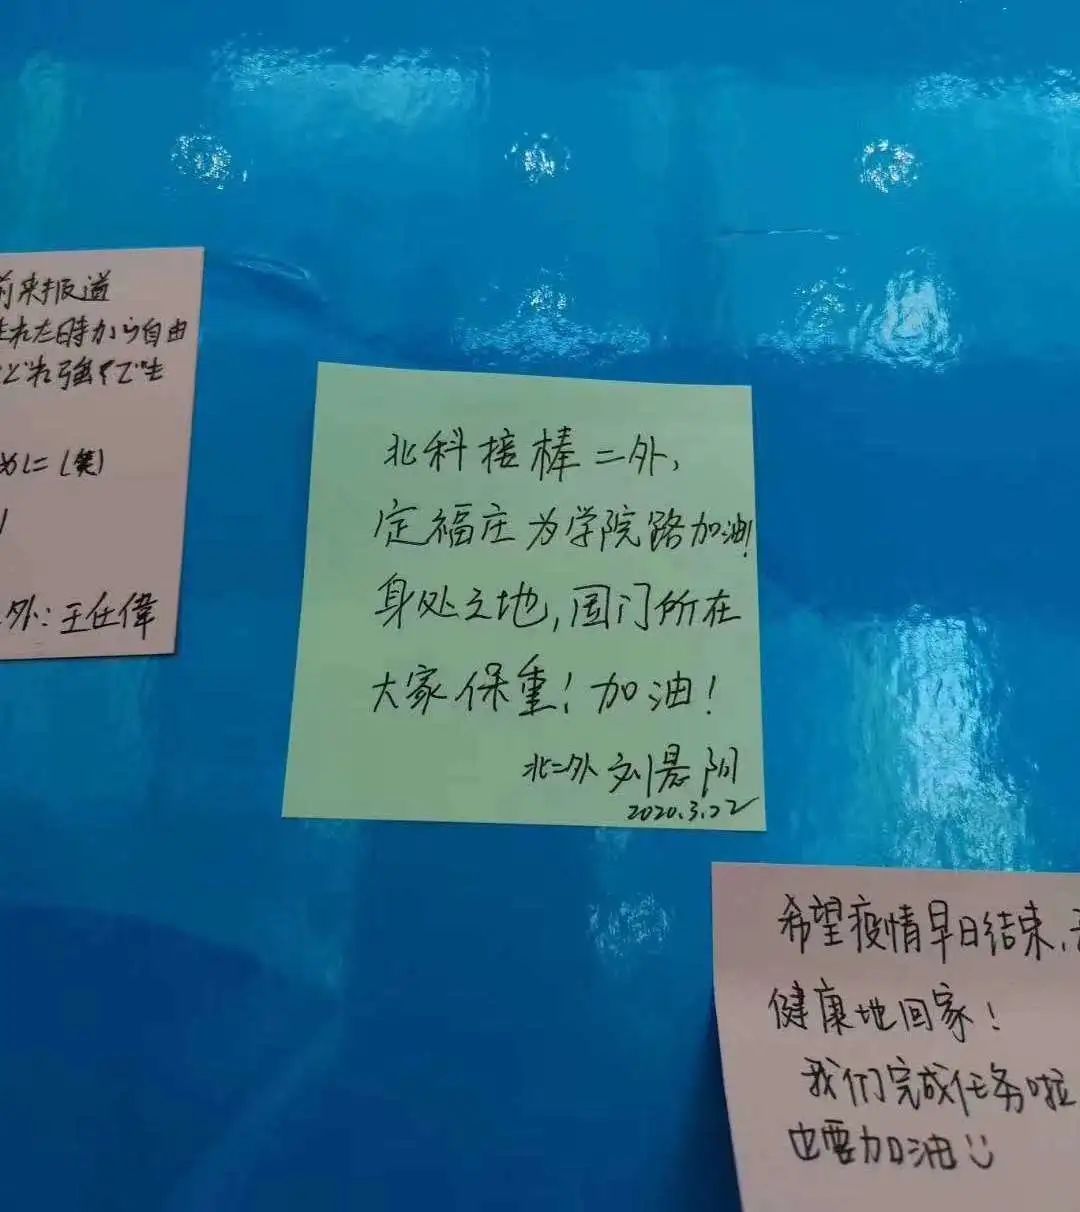 前来报道
れた時から自由
どれ強くて生
めに(笑)
外:王任偉
北科接棒二外,
定福庄为学院路加油!
身处之地,国门所在
大家保重!加油!
北二外 刘
2020.3.22
希望疫情早日结束,
健康地回家!
我们完成任务啦
也要加油